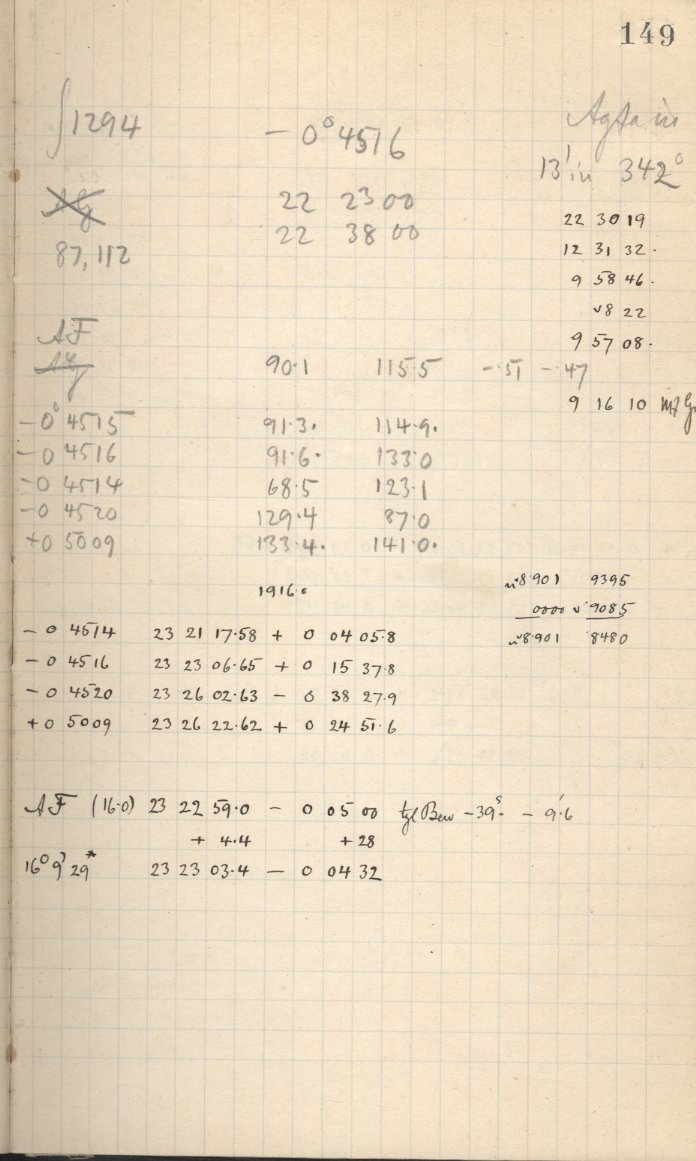 149
∫1294 − 0° 4516 in
13' in 342°
22 23 00 22 30 19
22 38 00 12 31 32.
87, 112 9 58 46.
8 22
AF 9 57 08.
90.1 115.5 −.51 −.47
9 16 10
−0° 4515 91.3. 114.9.
−0 4516 91.6. 133.0
−0 4514 68.5 123.1
−0 4520 129.4 87.0
+0 5009 133.4. 141.0.
1916.0 8.901 9395
0000 9085
−0 4514 23 21 17.58 + 0 04 05.8 8.901 8480
−0 4516 23 23 06.65 + 0 15 37.8
−0 4520 23 26 02.63 − 0 38 27.9
+0 5009 23 26 22.62 + 0 24 51.6
AF (16.0) 23 22 59.0 − 0 05 00 tgl Bew −39ˢ. − 9'.6
+ 4.4 +28
23 23 03.4 − 0 04 32